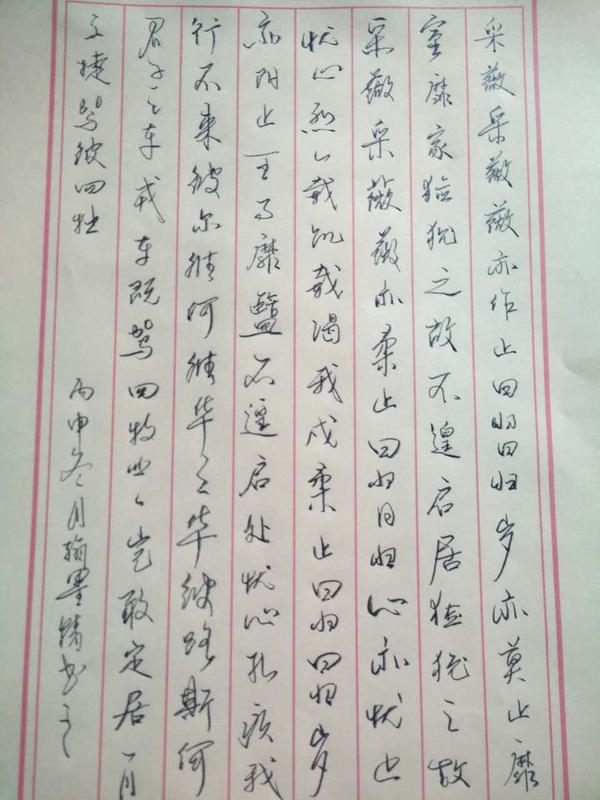 采薇采薇薇亦作止曰归曰归岁亦莫止靡
室靡家猃狁之故不遑启居猃狁之故
采薇采薇薇亦柔止曰归曰归心亦忧止
忧心烈々载饥载渴我戍柔止曰归曰归岁
亦阳止王事靡盬不遑启处忧心孔疚我
行不来彼尔维何维华之华彼路斯何
君子之车戎车既驾四牡业々岂敢定居一月
三捷驾彼四牡 丙申冬月翰墨书之